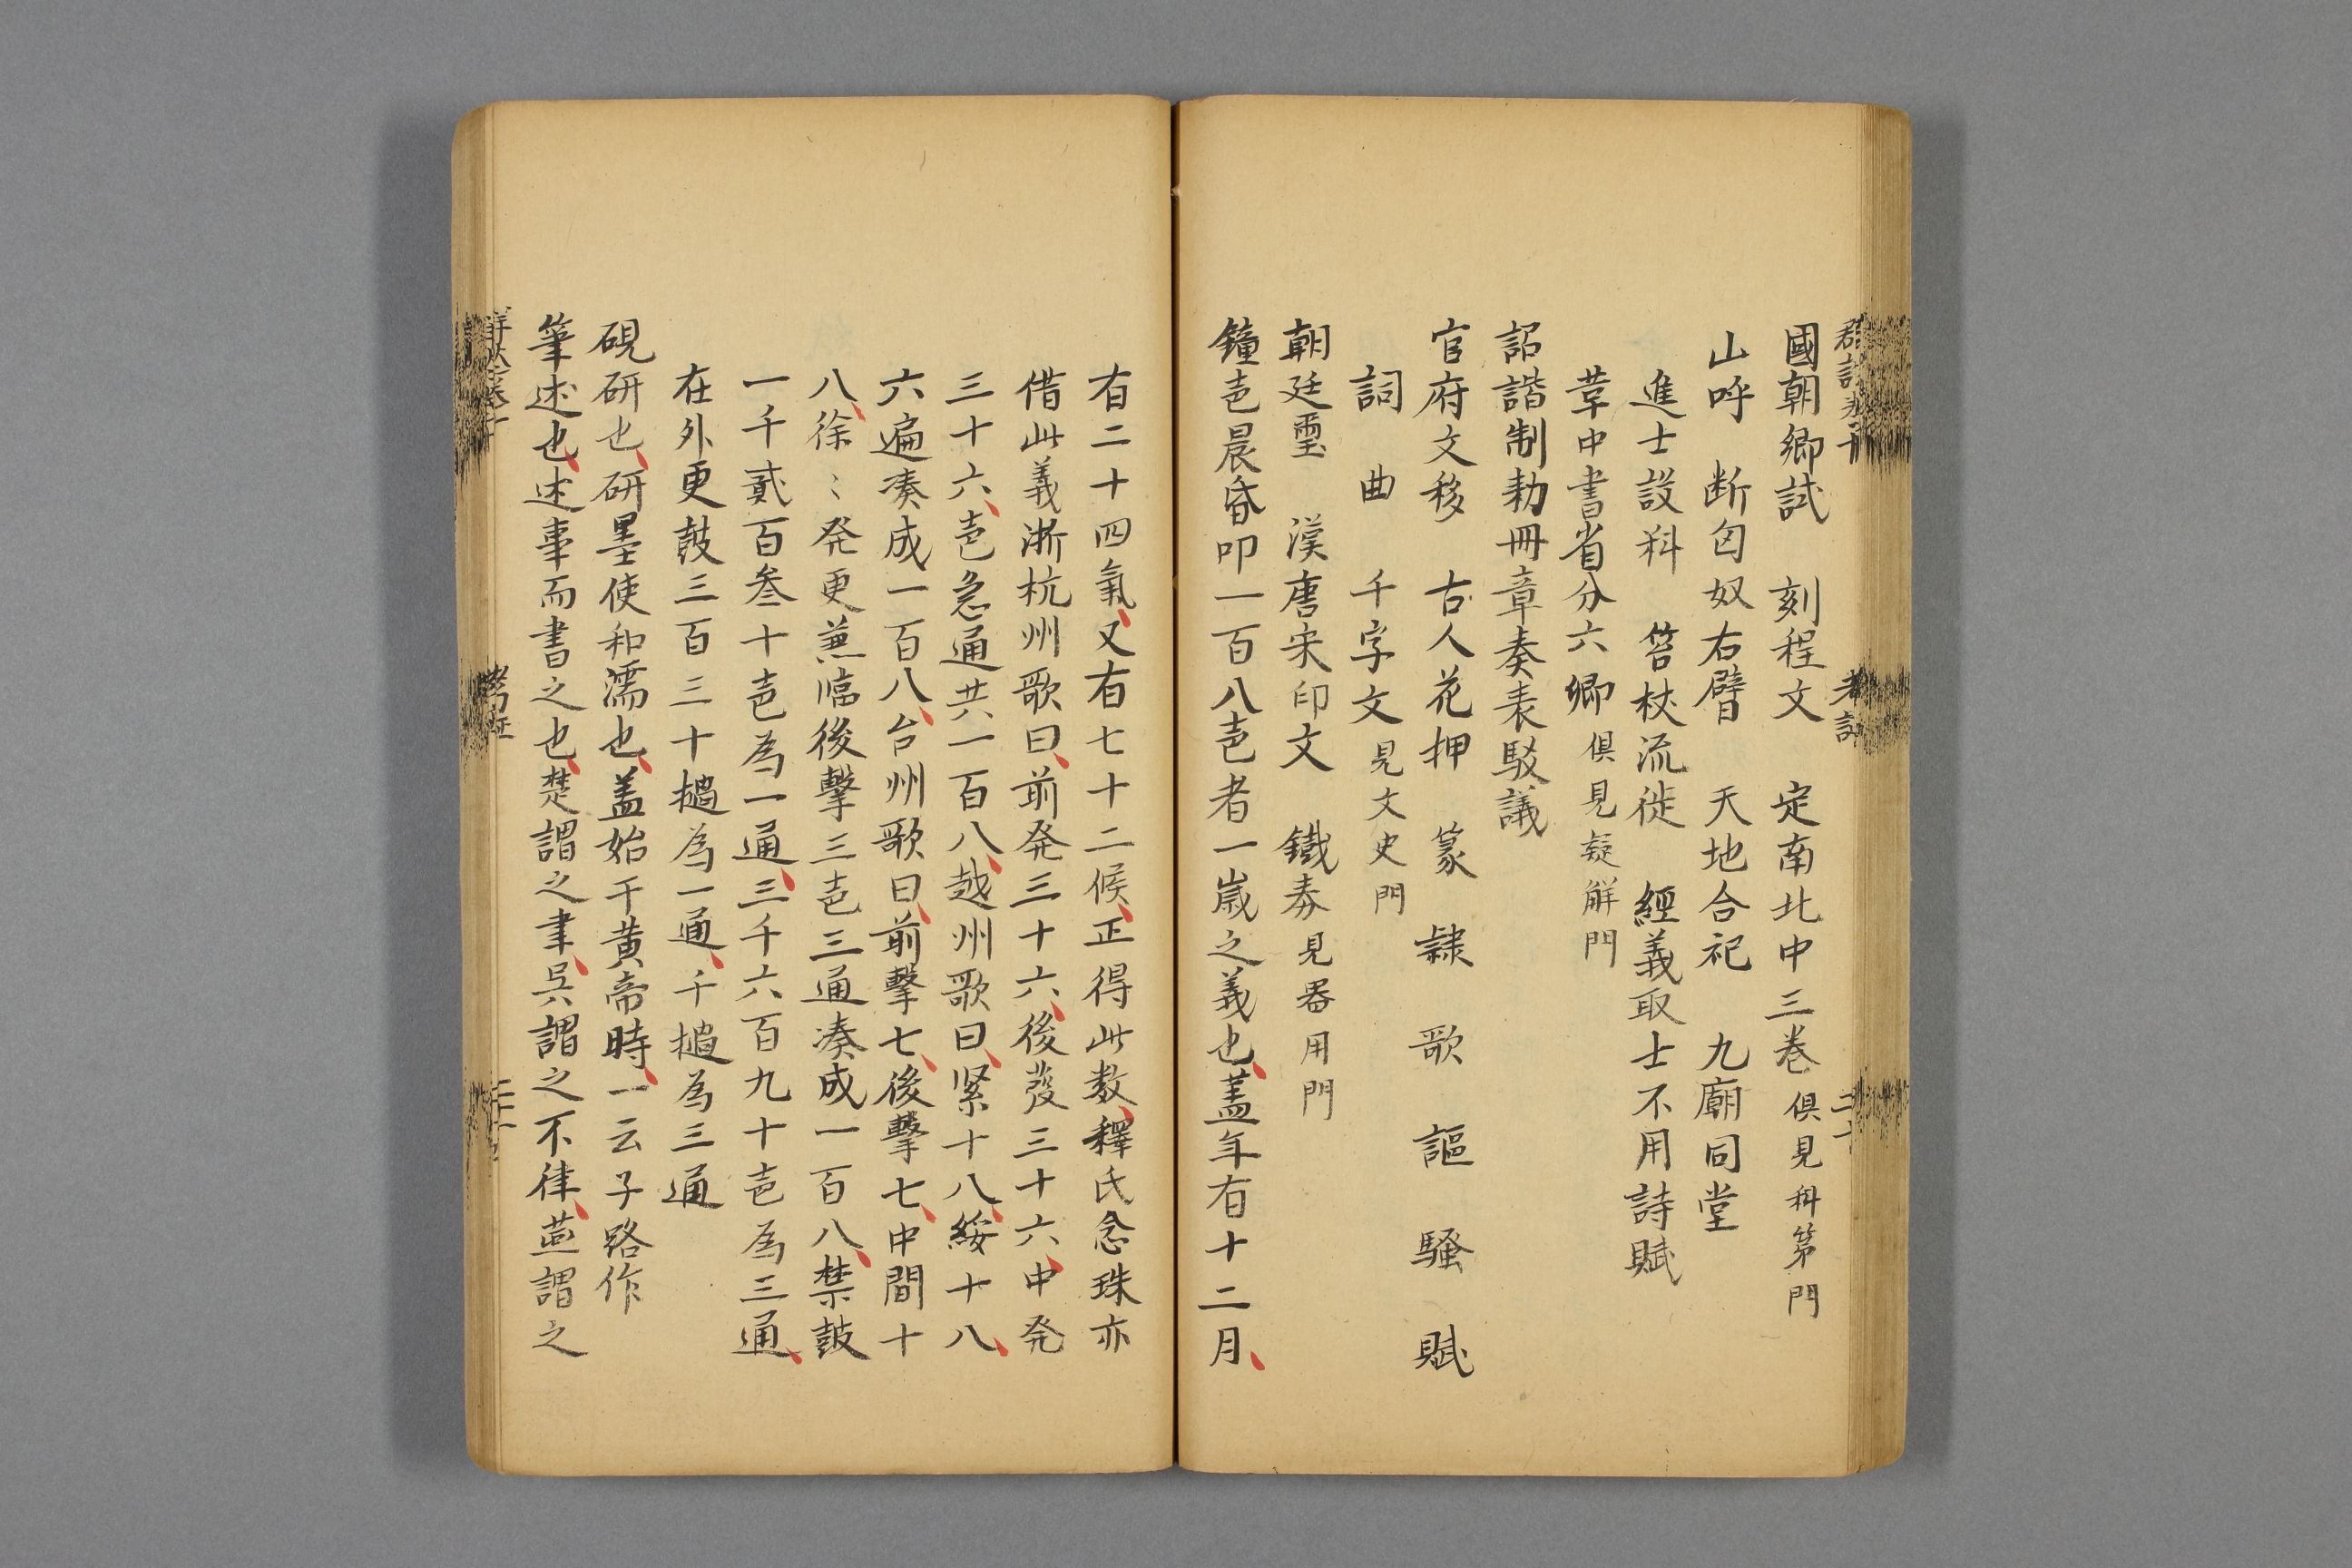 國朝鄉試　刻程文　定南北中三卷俱見科第門
山呼　断匈奴右臂　天地合祀　九廟同堂
進士設科　笞杖流徙　經義取士不用詩賦
革中書省分六卿俱見疑觧門
詔誥制勅冊章奏表駁議
官府文移　古人花押　篆　隸　歌　謳　騷　賦
詞　曲　千字文見文史門
朝廷璽　漢唐宋印文　鐵券見器用門
鐘声晨昏叩一百八声者一歲之義也盖年有十二月
有二十四氣又有七十二候正得此数釋氏念珠亦
借此義浙杭州歌曰前発三十六後發三十六中発
三十六声急通共一百八越州歌曰緊十八緩十八
六遍凑成一百八台州歌曰前擊七後擊七中間十
八徐〻発更兼臨後擊三声三通凑成一百八禁鼓
一千貳百叁十声為一通三千六百九十声為三通
在外更鼓三百三十搥為一通千搥為三通
硯研也研墨使和濡也盖始于黃帝時一云子路作
筆述也述事而書之也楚謂之聿吳謂之不律燕謂之